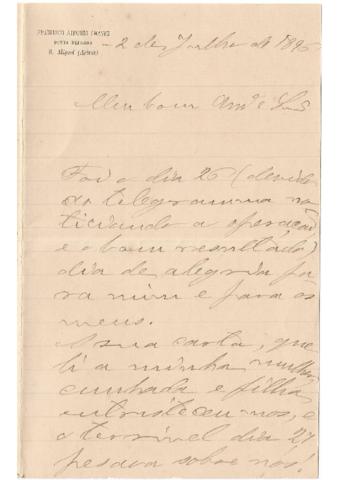 FRANCISCO AFFONSO CHAVES
PONTA DELGADA
S. Miguel (Açores)
2 de Julho de 1896
Meu bom Amº e Sr
Foi o dia 26 (devido
ao telegramma no
ticiando a operação
e o bom resultado)
dia de alegria pa
ra mim e para os
meus.
A sua carta, que
li a minha mulher
cunhada e filha
entristeceu-nos, e
o terrivel dia 27
pesava sobre nós!